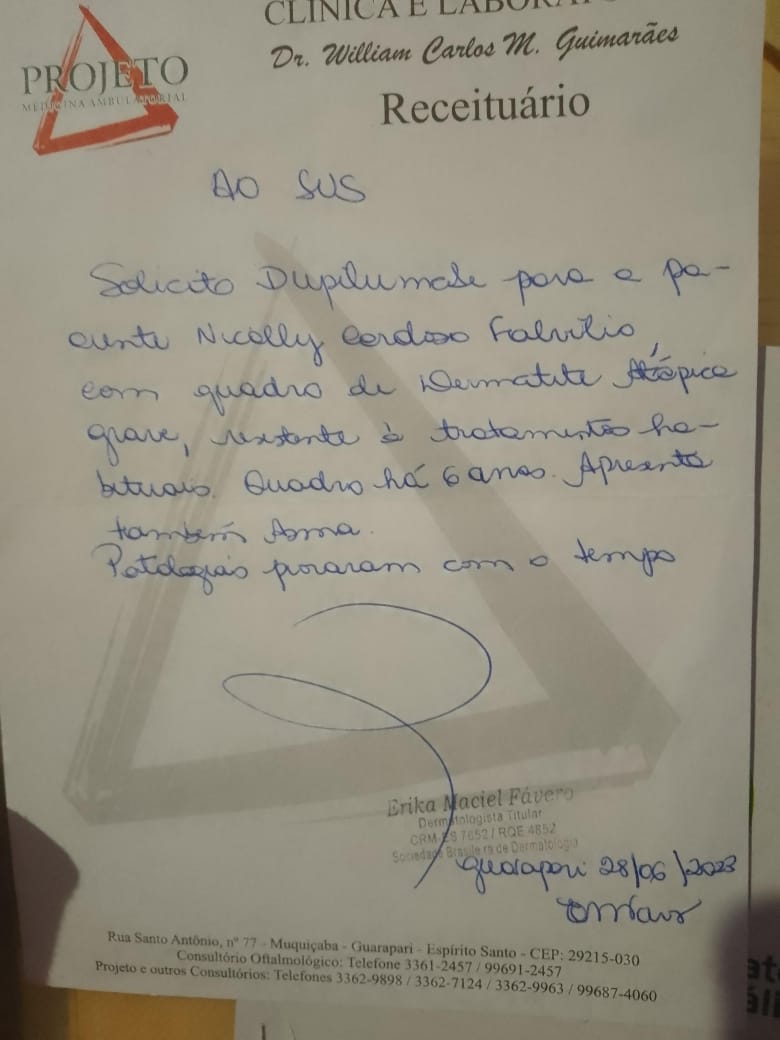 CLÍNICA E LABORATÓ
Dr. William Carlos M. Guimarães
PROJETO
MEDICINA AMBULATORIAL
Receituário
AO SUS
Solicito Dupilumabe para a pa-
ciente Nicolly Cardoso
com quadro de Dermatite Atópica
grave, resistente à tratamentos ha-
bituais. Quadro há 6 anos. Apresenta
também Asma.
Patologias pioraram com o tempo
Erika Maciel Fávero
Dermatologista Titular
CRM-ES 7652 / RQE 4852
Sociedade Brasileira de Dermatologia
Guarapari 28/06/2023
Rua Santo Antônio, nº 77 - Muquiçaba - Guarapari - Espírito Santo - CEP: 29215-030
Consultório Oftalmológico: Telefone 3361-2457 / 99691-2457
Projeto e outros Consultórios: Telefones 3362-9898 / 3362-7124 / 3362-9963 / 99687-4060